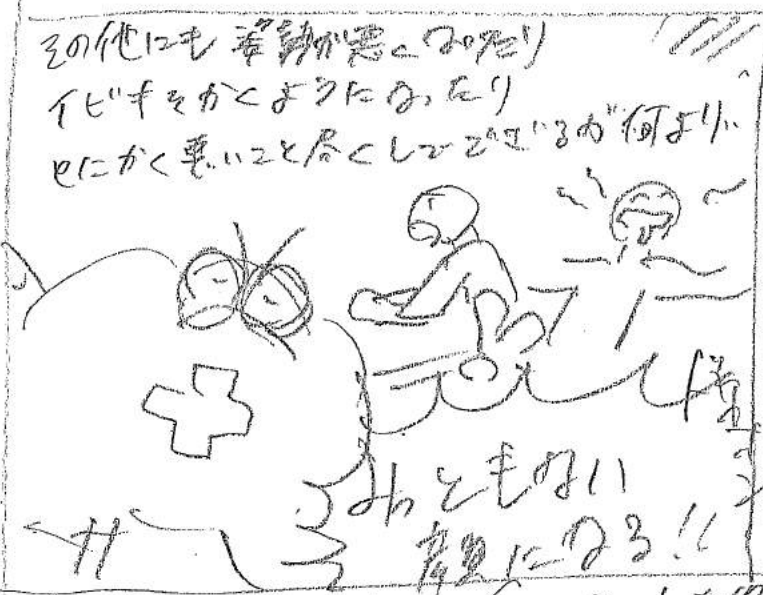 その他にも姿勢が悪くなったり
イビキをかくようになったり
とにかく悪いこと尽くしでございるが何より、
みっともない
顔になる!!